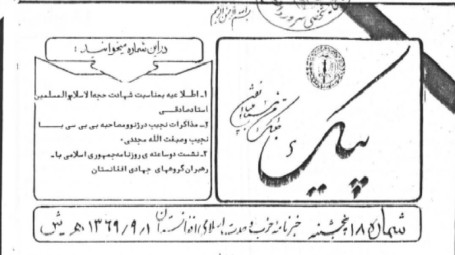 بسم الله الرحمن الرحیم
در این شماره میخوانید :
۱ـ اطلاعیه بمناسبت شهادت حجةالاسلام والمسلمین
استاد صادقی
۲ـ مذاکرات نجیب درژنوومصاحبه بی بی سی بـا
نجیب وصبغت الله مجددی .
۳ـ نشست دوساعته ی روزنامه جمهوری اسلامی بـا ـ
رهبران گروههای جهادی افغانستان
پیک
شماره ۱۸ پنجشنبه خبرنامه حزب وحدت اسلامی افغانستان ۱۳۶۹/۹/۱ هـ ش